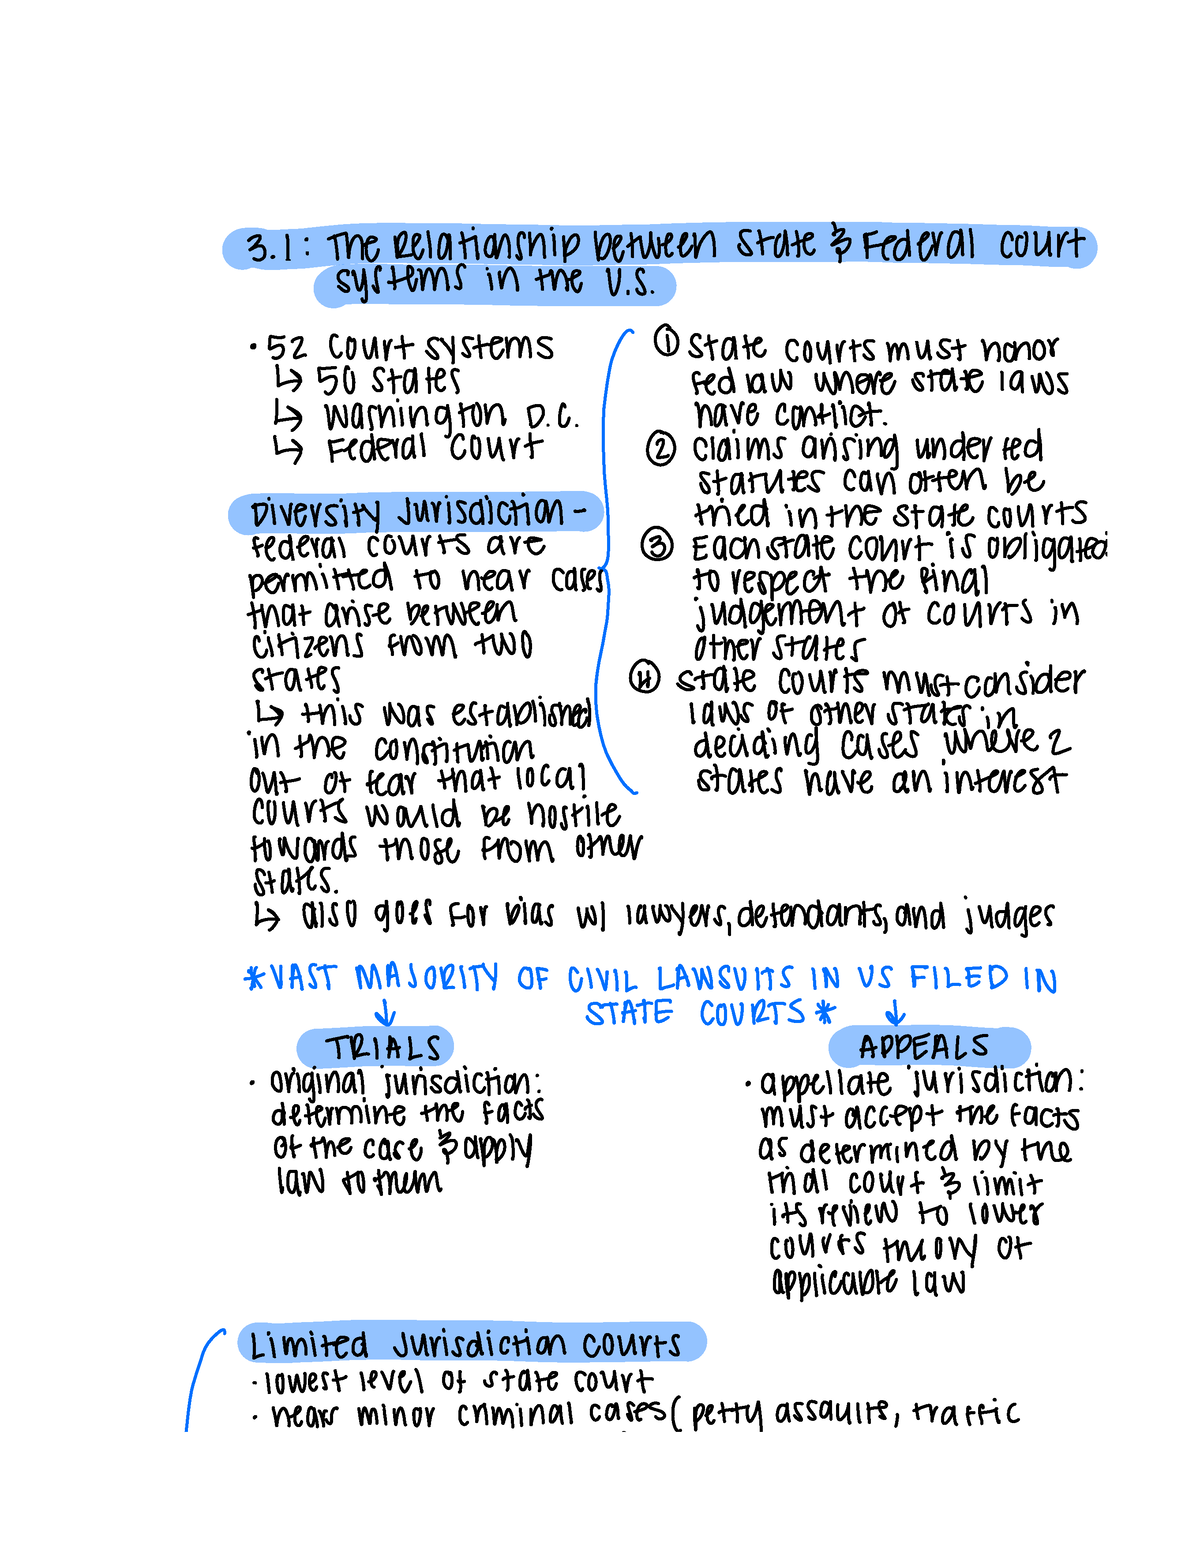 3.1: The Relationship between State & Federal court
systems in the U.S.
• 52 court systems
↳ 50 states
↳ Washington D.C.
↳ Federal court
Diversity Jurisdiction -
federal courts are
permitted to hear cases
that arise between
citizens from two
states
↳ this was established
in the constitution
out of fear that local
courts would be hostile
towards those from other
states.
↳ also goes for bias w/ lawyers, defendants, and judges
① State courts must honor
fed law where state laws
have conflict.
② claims arising under fed
statutes can often be
tried in the state courts
③ Each state court is obligated
to respect the final
judgement of courts in
other states
④ state courts must consider
laws of other states in
deciding cases where 2
states have an interest
*VAST MAJORITY OF CIVIL LAWSUITS IN US FILED IN
STATE COURTS*
↓
TRIALS
• original jurisdiction:
determine the facts
of the case & apply
law to them
↓
APPEALS
• appellate jurisdiction:
must accept the facts
as determined by the
trial court & limit
its review to lower
courts theory of
applicable law
Limited Jurisdiction Courts
• lowest level of state court
• hears minor criminal cases (petty assaults, traffic